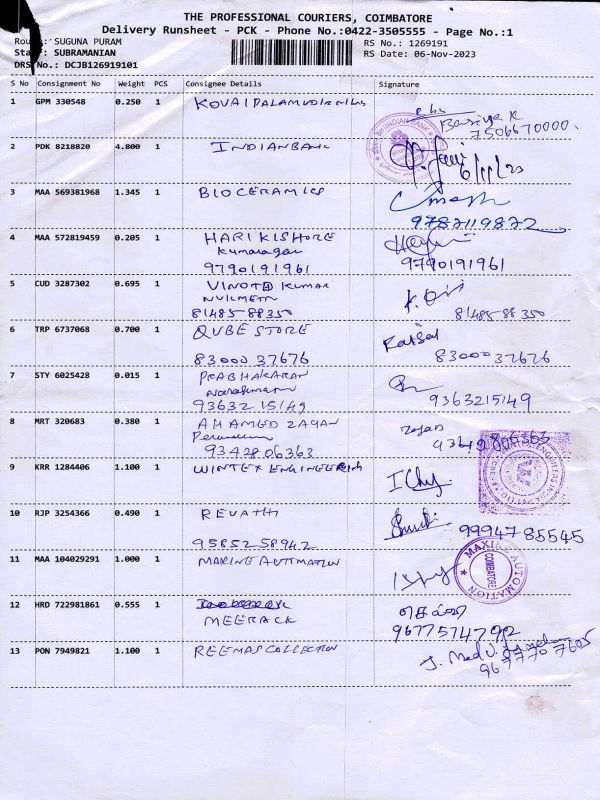 THE PROFESSIONAL COURIERS, COIMBATORE
Delivery Runsheet - PCK - Phone No.:0422-3505555 - Page No.:1
Route: SUGUNA PURAM
RS No.: 1269191
Staff: SUBRAMANIAN
RS Date: 06-Nov-2023
DRS No.: DCJB126919101
S No Consignment No Weight PCS Consignee Details Signature
1 GPM 330548 0.250 1 KOVAI PALAMUDIR NILAS
7506670000.
2 PDK 8218820 4.800 1 INDIAN BANK
INDIAN BANK
6/11/23
3 MAA 569381968 1.345 1 BIOCERAMICS
9787119872
4 MAA 572819459 0.205 1 HARIKISHORE
Kumaragan
9790191961 9790191961
5 CUD 3287302 0.695 1 VINOTH KUMAR
8148588350 8148588350
6 TRP 6737068 0.700 1 QUBE STORE
Faisal
8300037676 8300037676
7 STY 6025428 0.015 1 PRABHAKARAN
9363215149 9363215149
8 MRT 320683 0.380 1 AHAMED ZAYAN
9342806363 9342806363
9 KRR 1284406 1.100 1 WINTEX ENGINEERING
10 RJP 3254366 0.490 1 REVATHI
9994785545
9585258942
11 MAA 104029291 1.000 1 MAXINE AUTOMATION
MAXINE AUTOMATION
COIMBATORE
12 HRD 722981861 0.555 1
செல்வி
MEERACK 9677574792
13 PON 7949821 1.100 1 REEMAS COLLECTION
967770 7605